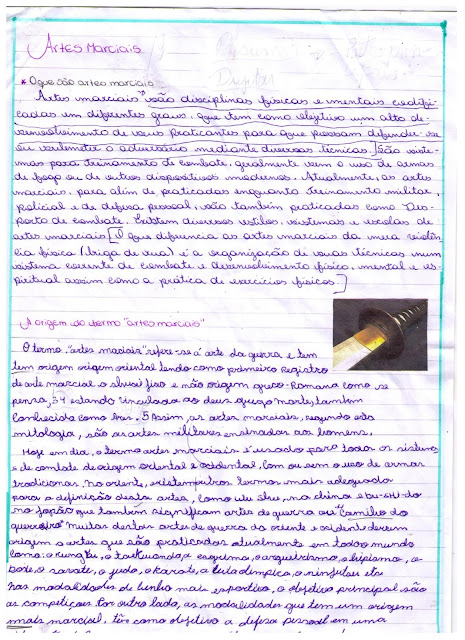 Artes Marciais
* O que são artes marciais
Artes marciais são disciplinas físicas e mentais codifi-
cadas em diferentes graus, que tem como objetivo um alto de-
senvolvimento de seus praticantes para que possam defender-se
ou submeter o adversário mediante diversas técnicas. São siste-
mas para treinamento de combate, geralmente sem o uso de armas
de fogo ou de outros dispositivos modernos. Atualmente, as artes
marciais, para além de praticadas enquanto treinamento militar,
policial e de defesa pessoal, são também praticadas como Des-
porto de combate. Existem diversos estilos, sistemas e escolas de
artes marciais. O que diferencia as artes marciais da mera violên-
cia física (briga de rua) é a organização de suas técnicas num
sistema coerente de combate e desenvolvimento físico, mental e es-
piritual assim como a prática de exercícios físicos.
A origem do termo "artes marciais"
O termo "artes maciais" refere-se á arte da guerra e tem
tem origem origem oriental tendo como primeiro registro
de arte marcial o shuai jiao e não origem greco-Romana como se
pensa, 34 estando vinculada ao deus grego marte, também
conhecido como Ares. 5 Assim, as artes marciais, segundo esta
mitologia, são as artes militares ensinadas aos homens.
Hoje em dia, o termo artes marciais é usado para todos os sistemas
de combate de origem oriental e ocidental, com ou sem o uso de armas
tradicionais. No oriente, existem outros termos mais adequada
para a definição destas artes, como wu shu, na china e bu-shi-do
no Japão que também significam artes de guerra ou "caminho do
guerreiro" muitas destas artes de guerra do oriente e ocident deram
origem a artes que são praticadas atualmente em todo o mundo
como: o Kung fu, o taekwondo, a esgrima, o arqueirismo, o hipismo, o
boxe, o savate, o judo, o karate, a luta olímpica, o ninjutsu etc
nas modalidades de cunho mais esportivo, o objetivo principal são
as competiçoes Por outro lado, as modalidades que tem um origem
mais marcial, têm como objetivo a defesa pessoal em uma